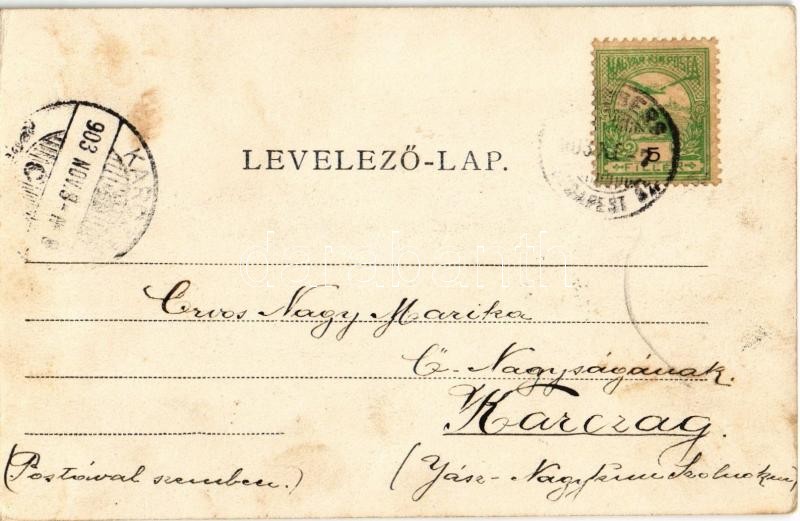 MAGYAR KIR. POSTA
5
FILLÉR
BUDAPEST
KAR
903 NOV. 8
LEVELEZŐ-LAP.
darabanth
Orvos Nagy Marika
Ő-Nagyságának.
Karczag.
(Postával szemben.)
(Jász-Nagykun Szolnok